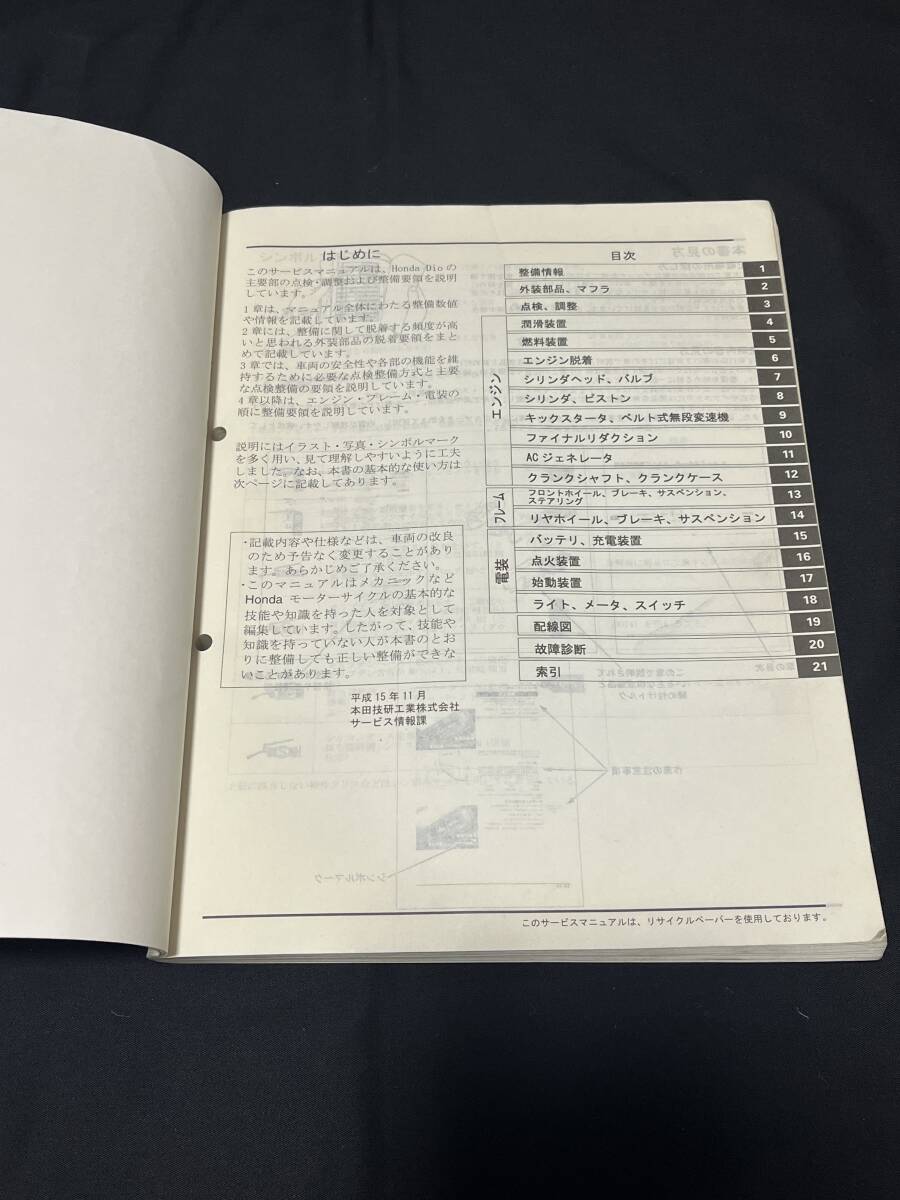 はじめに
このサービスマニュアルは、Honda Dio の
主要部の点検・調整および整備要領を説明
しています。
1 章は、マニュアル全体にわたる整備数値
や情報を記載しています。
2 章には、整備に関して脱着する頻度が高
いと思われる外装部品の脱着要領をまと
めて記載しています。
3 章では、車両の安全性や各部の機能を維
持するために必要な点検整備方式と主要
な点検整備の要領を説明しています。
4 章以降は、エンジン・フレーム・電装の
順に整備要領を説明しています。
説明にはイラスト・写真・シンボルマーク
を多く用い、見て理解しやすいように工夫
しました。なお、本書の基本的な使い方は
次ページに記載してあります。
・記載内容や仕様などは、車両の改良
のため予告なく変更することがあり
ます。あらかじめご了承ください。
・このマニュアルはメカニックなど
Honda モーターサイクルの基本的な
技能や知識を持った人を対象として
編集しています。したがって、技能や
知識を持っていない人が本書のとお
りに整備しても正しい整備ができな
いことがあります。
平成 15 年 11 月
本田技研工業株式会社
サービス情報課
目次
整備情報 1
外装部品、マフラ 2
点検、調整 3
エンジン
潤滑装置 4
燃料装置 5
エンジン脱着 6
シリンダヘッド、バルブ 7
シリンダ、ピストン 8
キックスタータ、ベルト式無段変速機 9
ファイナルリダクション 10
ACジェネレータ 11
クランクシャフト、クランクケース 12
フレーム
フロントホイール、ブレーキ、サスペンション、
ステアリング 13
リヤホイール、ブレーキ、サスペンション 14
電装
バッテリ、充電装置 15
点火装置 16
始動装置 17
ライト、メータ、スイッチ 18
配線図 19
故障診断 20
索引 21
このサービスマニュアルは、リサイクルペーパーを使用しております。